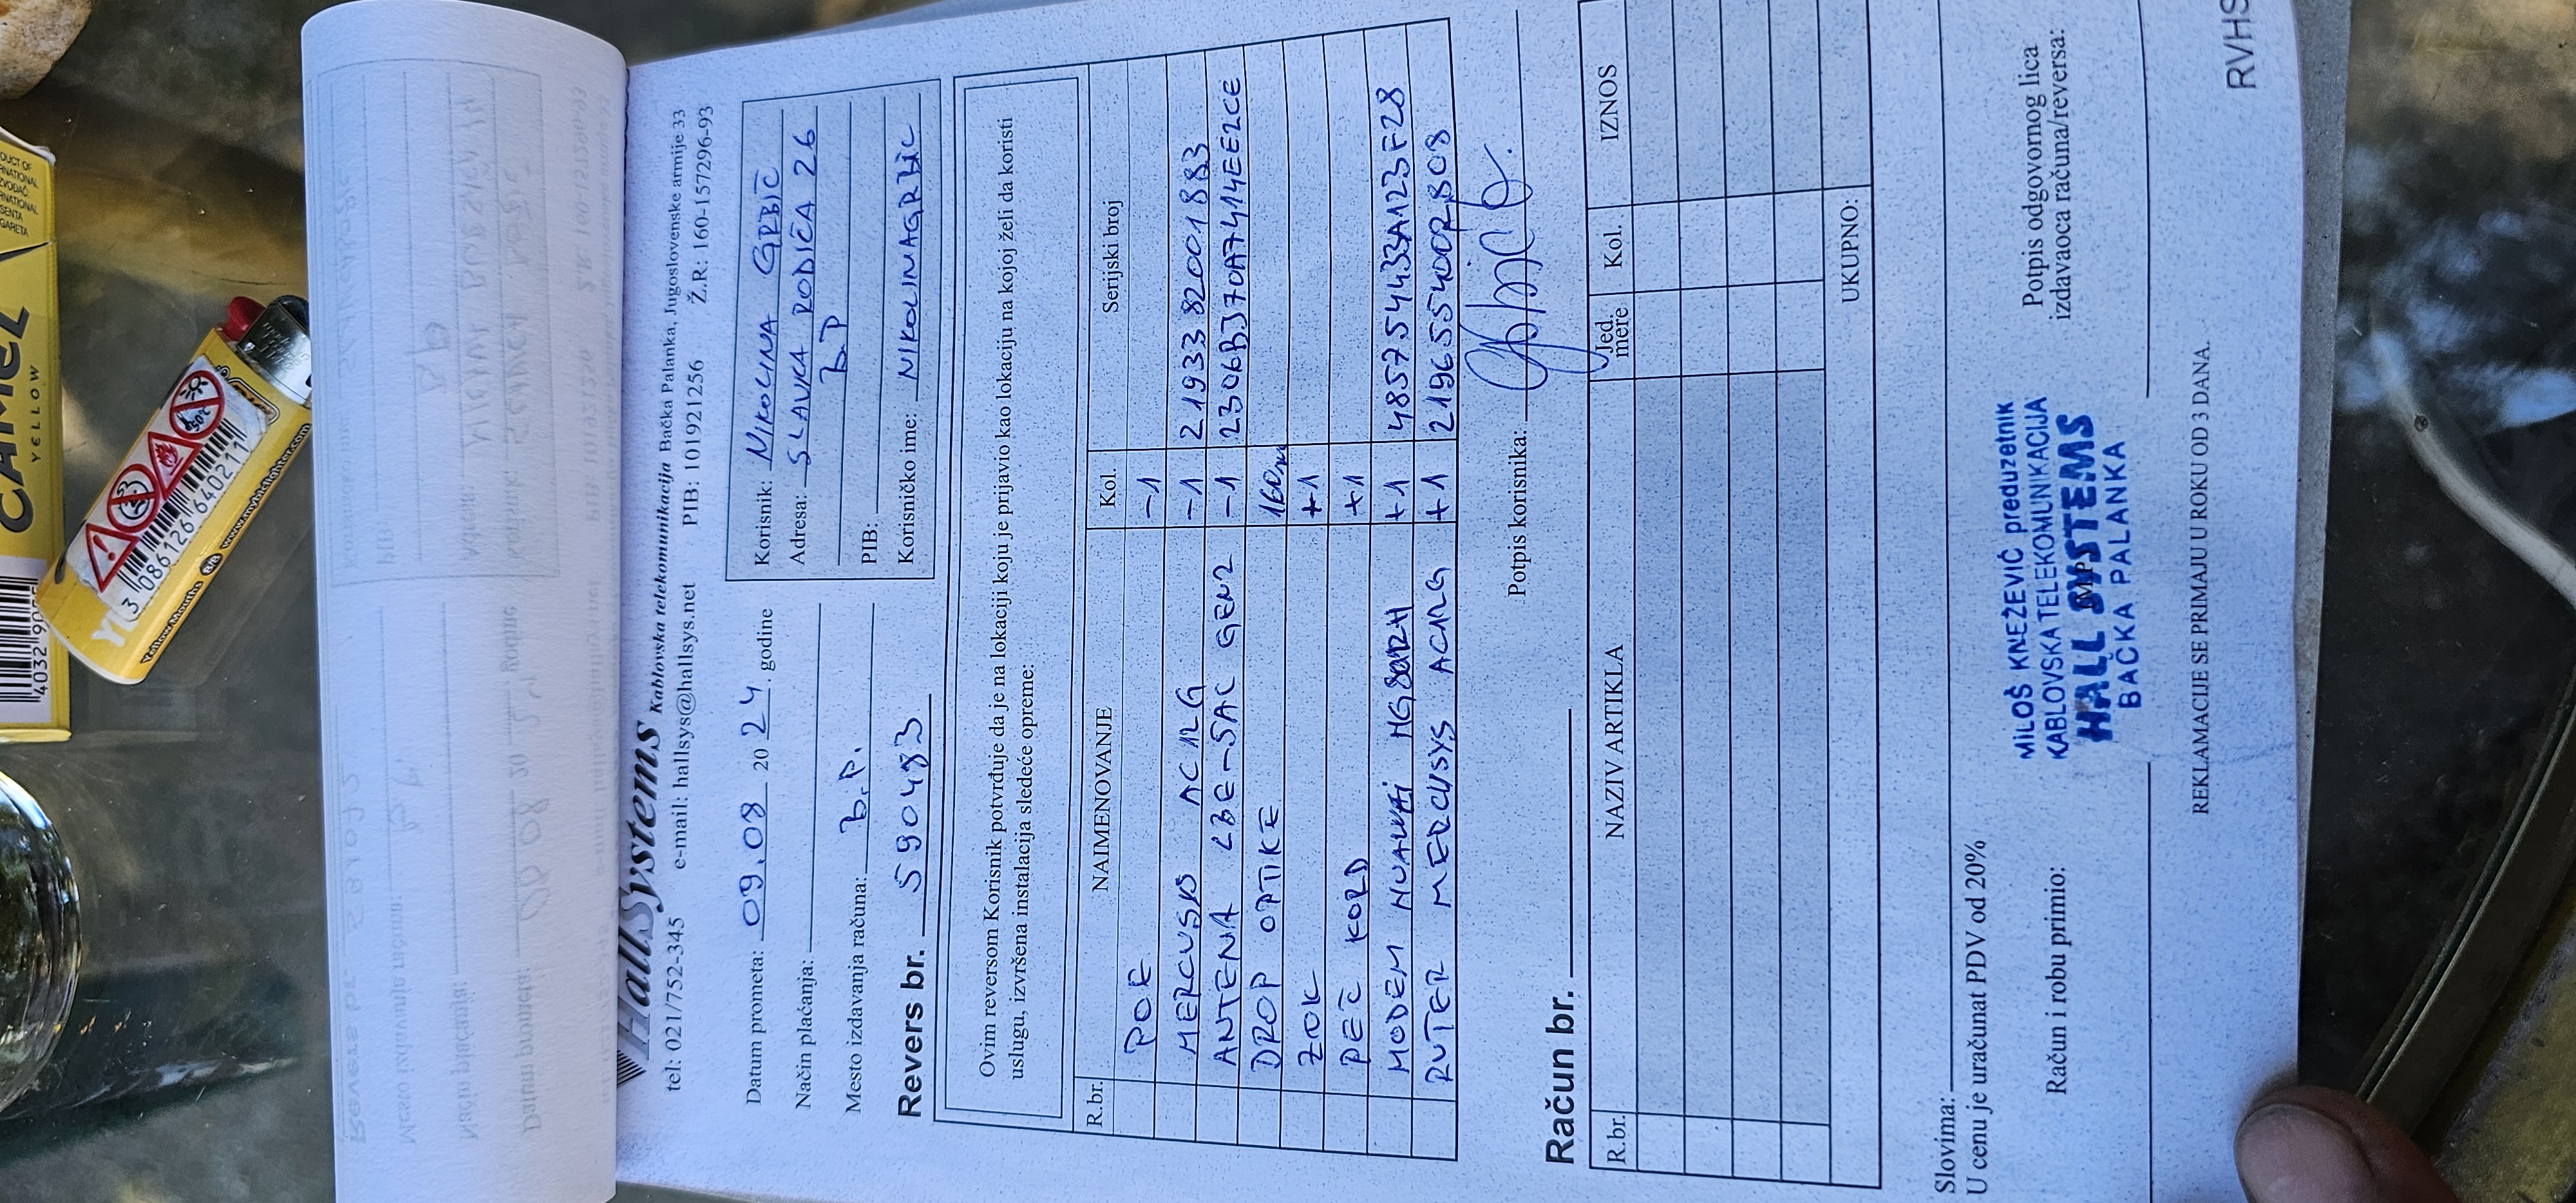 HallSystems Kablovska telekomunikacija Bačka Palanka, Jugoslovenske armije 33
tel: 021/752-345 e-mail: hallsys@hallsys.net PIB: 101921256 Ž.R: 160-157296-93
Datum prometa: 09.08 2024. godine
Način plaćanja:
Mesto izdavanja računa: B.P.
Revers br. 590483
Korisnik: NIKOLINA GRBIĆ
Adresa: SLAVKA RODIĆA 26
B.P
PIB:
Korisničko ime: NIKOLINAGRBIC
Ovim reversom Korisnik potvrđuje da je na lokaciji koju je prijavio kao lokaciju na kojoj želi da koristi
uslugu, izvršena instalacija sledeće opreme:
R.br. NAIMENOVANJE Kol. Serijski broj
POE -1
MERCUSYS AC12G -1 2193382001883
ANTENA LBE-5AC GEN2 -1 2306BJ70A7414EE2CE
DROP OPTIKE 160m
ZOK +1
PEČ KORD +1
MODEM HUAWEI +1 485754433A123F28
RUTER MERCUSYS AC12G +1
Potpis korisnika:
Račun br.
R.br. NAZIV ARTIKLA Jed. mere Kol. IZNOS
UKUPNO:
Slovima:
U cenu je uračunat PDV od 20%
Račun i robu primio:
MILOŠ KNEŽEVIĆ preduzetnik
KABLOVSKA TELEKOMUNIKACIJA
HALL SYSTEMS
BAČKA PALANKA
Potpis odgovornog lica
izdavaoca računa/reversa:
REKLAMACIJE SE PRIMAJU U ROKU OD 3 DANA.
RVHS
CAMEL
YELLOW
3 086126 640211
www.mybiclighter.com
50°C